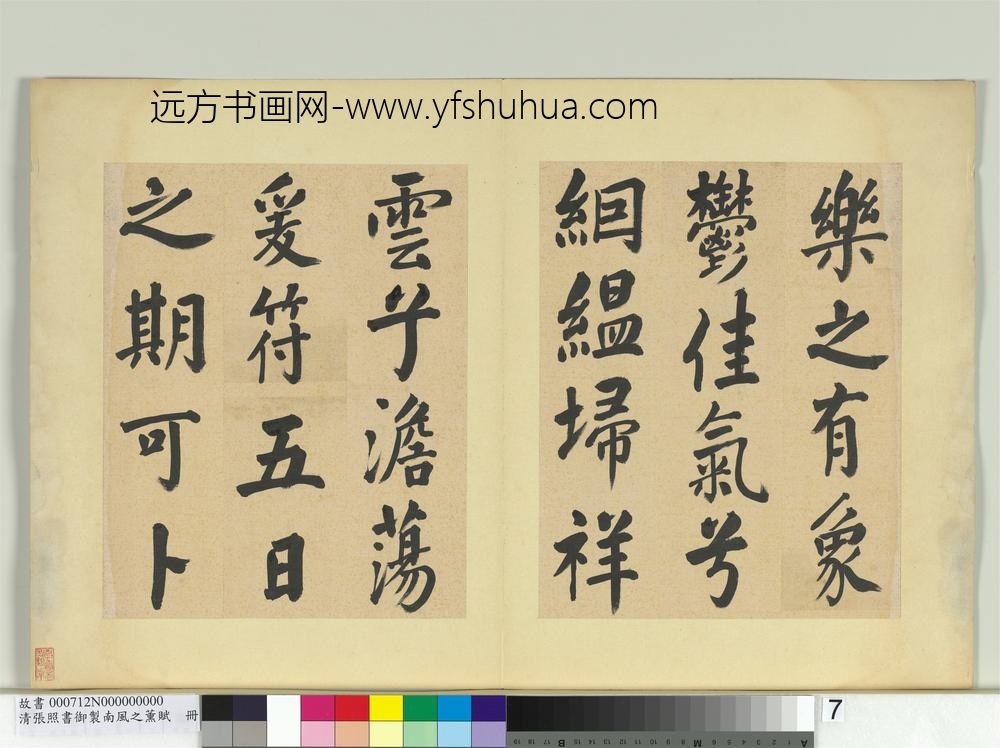 远方书画网-www.yfshuhua.com
樂之有象
鬱佳氣兮
絪縕埽祥
雲兮澹蕩
爰符五日
之期可卜
故書 000712N000000000
清張照書御製南風之薰賦 冊
7